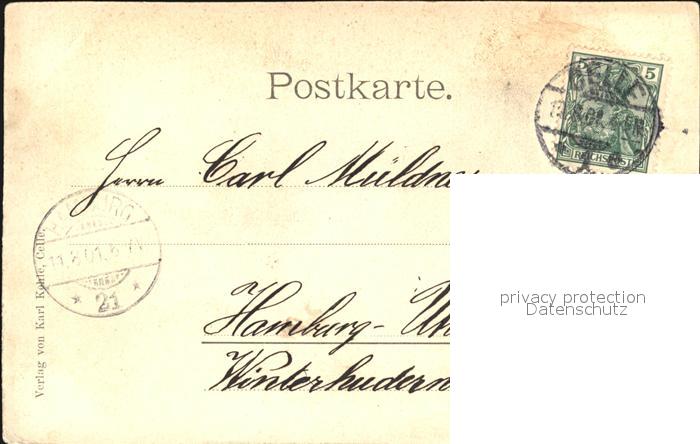 Postkarte.
5
REICHSPOST
CELLE
Herrn Carl Müldne
HAMBURG
11.8.01.
* 21 *
Hamburg - Uh
Winterhudern
Verlag von Karl Kohle, Celle.
privacy protection
Datenschutz